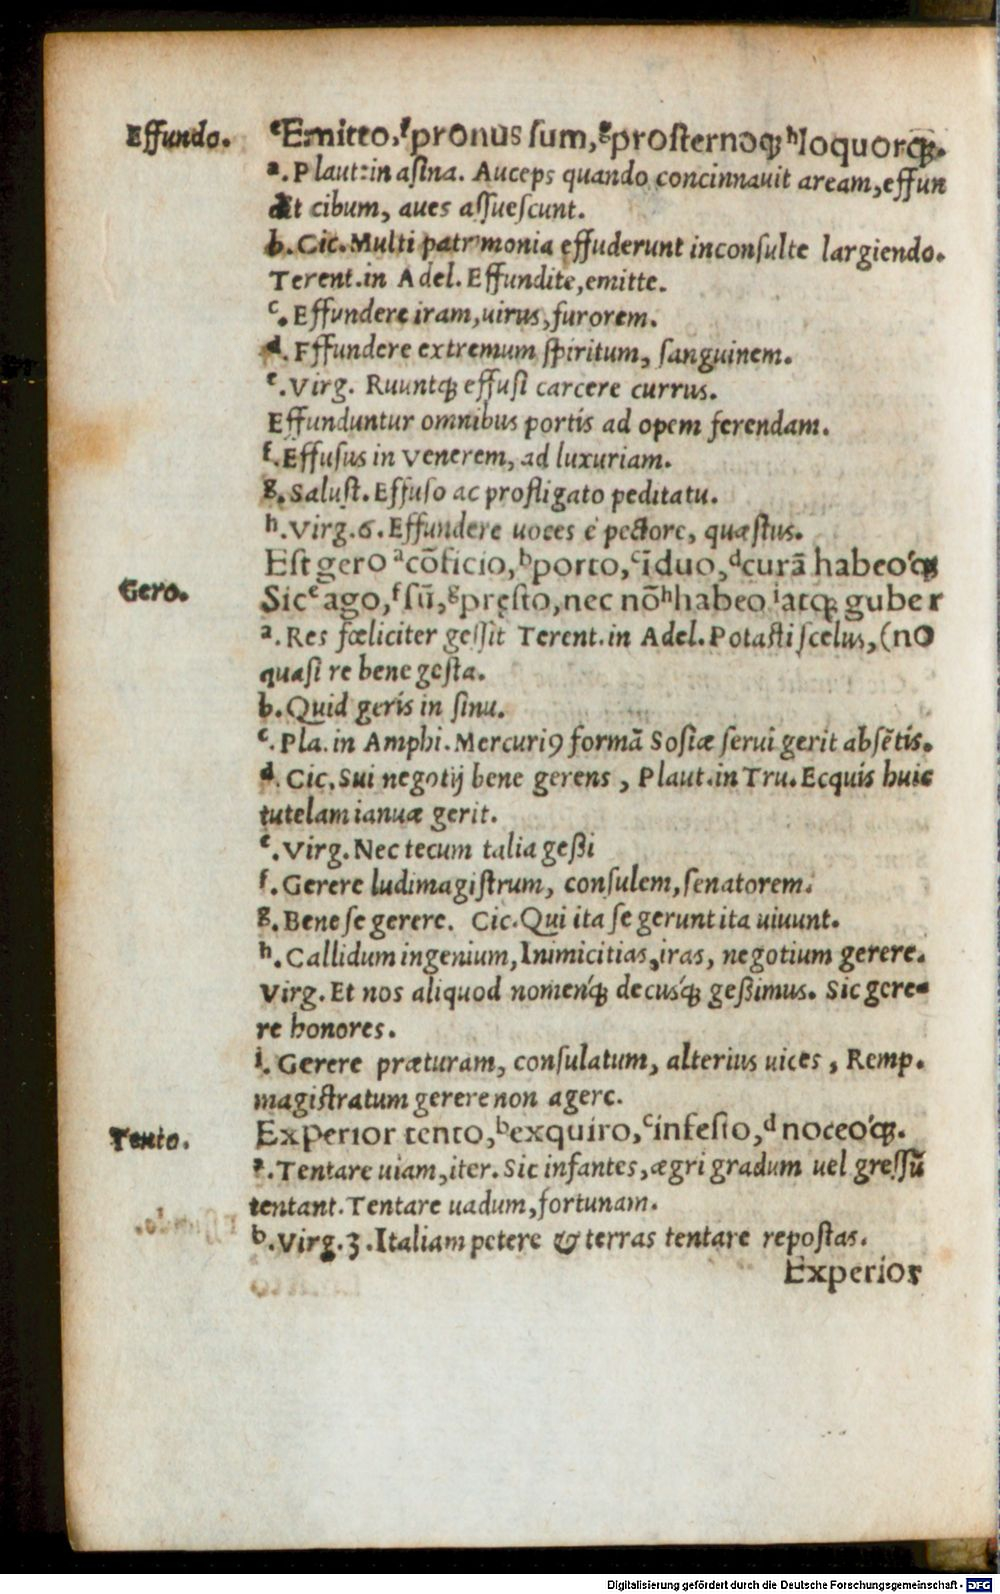 Effundo. ᵉEmitto,ᶠpronus ſum,ᵍproſternoq́ꝫ ʰloquorq́ꝫ.
ᵃ.Plaut:in aſina. Auceps quando concinnauit aream,effun
dit cibum, aues aſſueſcunt.
b.Cic.Multi patrimonia effuderunt inconſulte largiendo.
Terent.in Adel. Effundite,emitte.
ᶜ.Effundere iram,uirus,furorem.
d.Fffundere extremum ſpiritum, ſanguinem.
ᵉ.Virg. Ruuntqꝫ effuſi carcere currus.
Effunduntur omnibus portis ad opem ferendam.
f.Effuſus in Venerem, ad luxuriam.
g.Saluſt.Effuſo ac profligato peditatu.
h.Virg.6.Effundere uoces è pectore, quæſtus.
Gero. Eſt gero ᵃcōficio,ᵇporto,ᶜīduo,ᵈcurā habeo'qꝫ
Sicᵉago,ᶠſū,ᵍpręſto,nec nōʰhabeo ⁱatqꝫ guber
ᵃ.Res fœliciter geſſit Terent.in Adel.Potaſti ſcelus,(no
quaſi re bene geſta.
b.Quid geris in ſinu.
ᶜ.Pla.in Amphi.Mercuriꝰ formā Soſiæ ſerui gerit abſētis.
d.Cic.Sui negotij bene gerens, Plaut.in Tru.Ecquis huic
tutelam ianuæ gerit.
ᵉ.Virg.Nec tecum talia geßi
f.Gerere ludimagiſtrum, conſulem,ſenatorem.
g.Bene ſe gerere. Cic.Qui ita ſe gerunt ita uiuunt.
h.Callidum ingenium,Inimicitias,iras, negotium gerere.
Virg.Et nos aliquod nomen'qꝫ decus'qꝫ geßimus. Sic gere-
re honores.
i.Gerere præturam, conſulatum, alterius uices, Remp.
magiſtratum gerere non agere.
Tento. Experior tento,ᵇexquiro,ᶜinfeſto,ᵈnoceo'qꝫ.
ᵃ.Tentare uiam,iter.Sic infantes,ægri gradum uel greſſū
tentant.Tentare uadum,fortunam.
b.Virg.3.Italiam petere & terras tentare repoſtas.
Experior
Digitalisierung gefördert durch die Deutsche Forschungsgemeinschaft - DFG